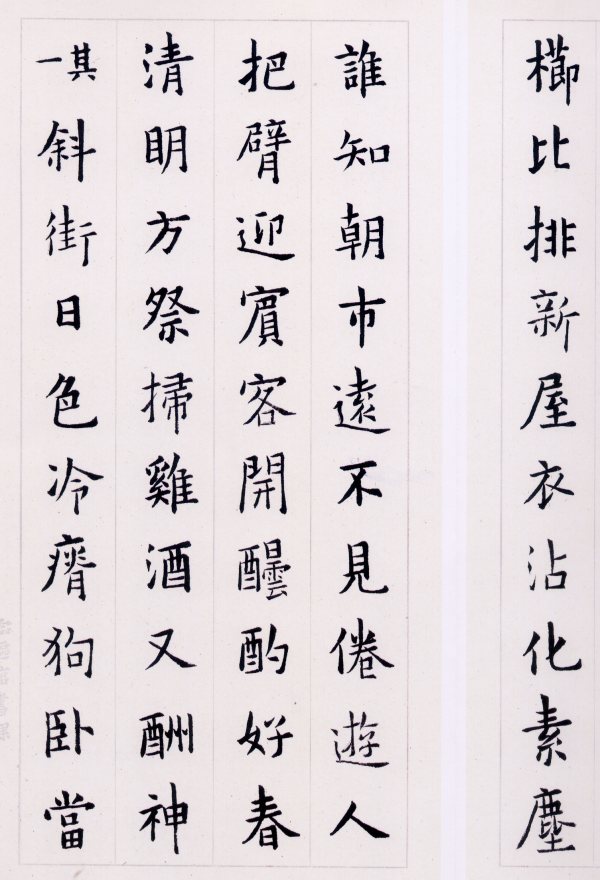 櫛比排新屋衣沾化素塵
誰知朝市遠不見倦遊人
把臂迎賓客開醰酌好春
清明方祭掃雞酒又酬神
其一
斜街日色冷瘠狗卧當